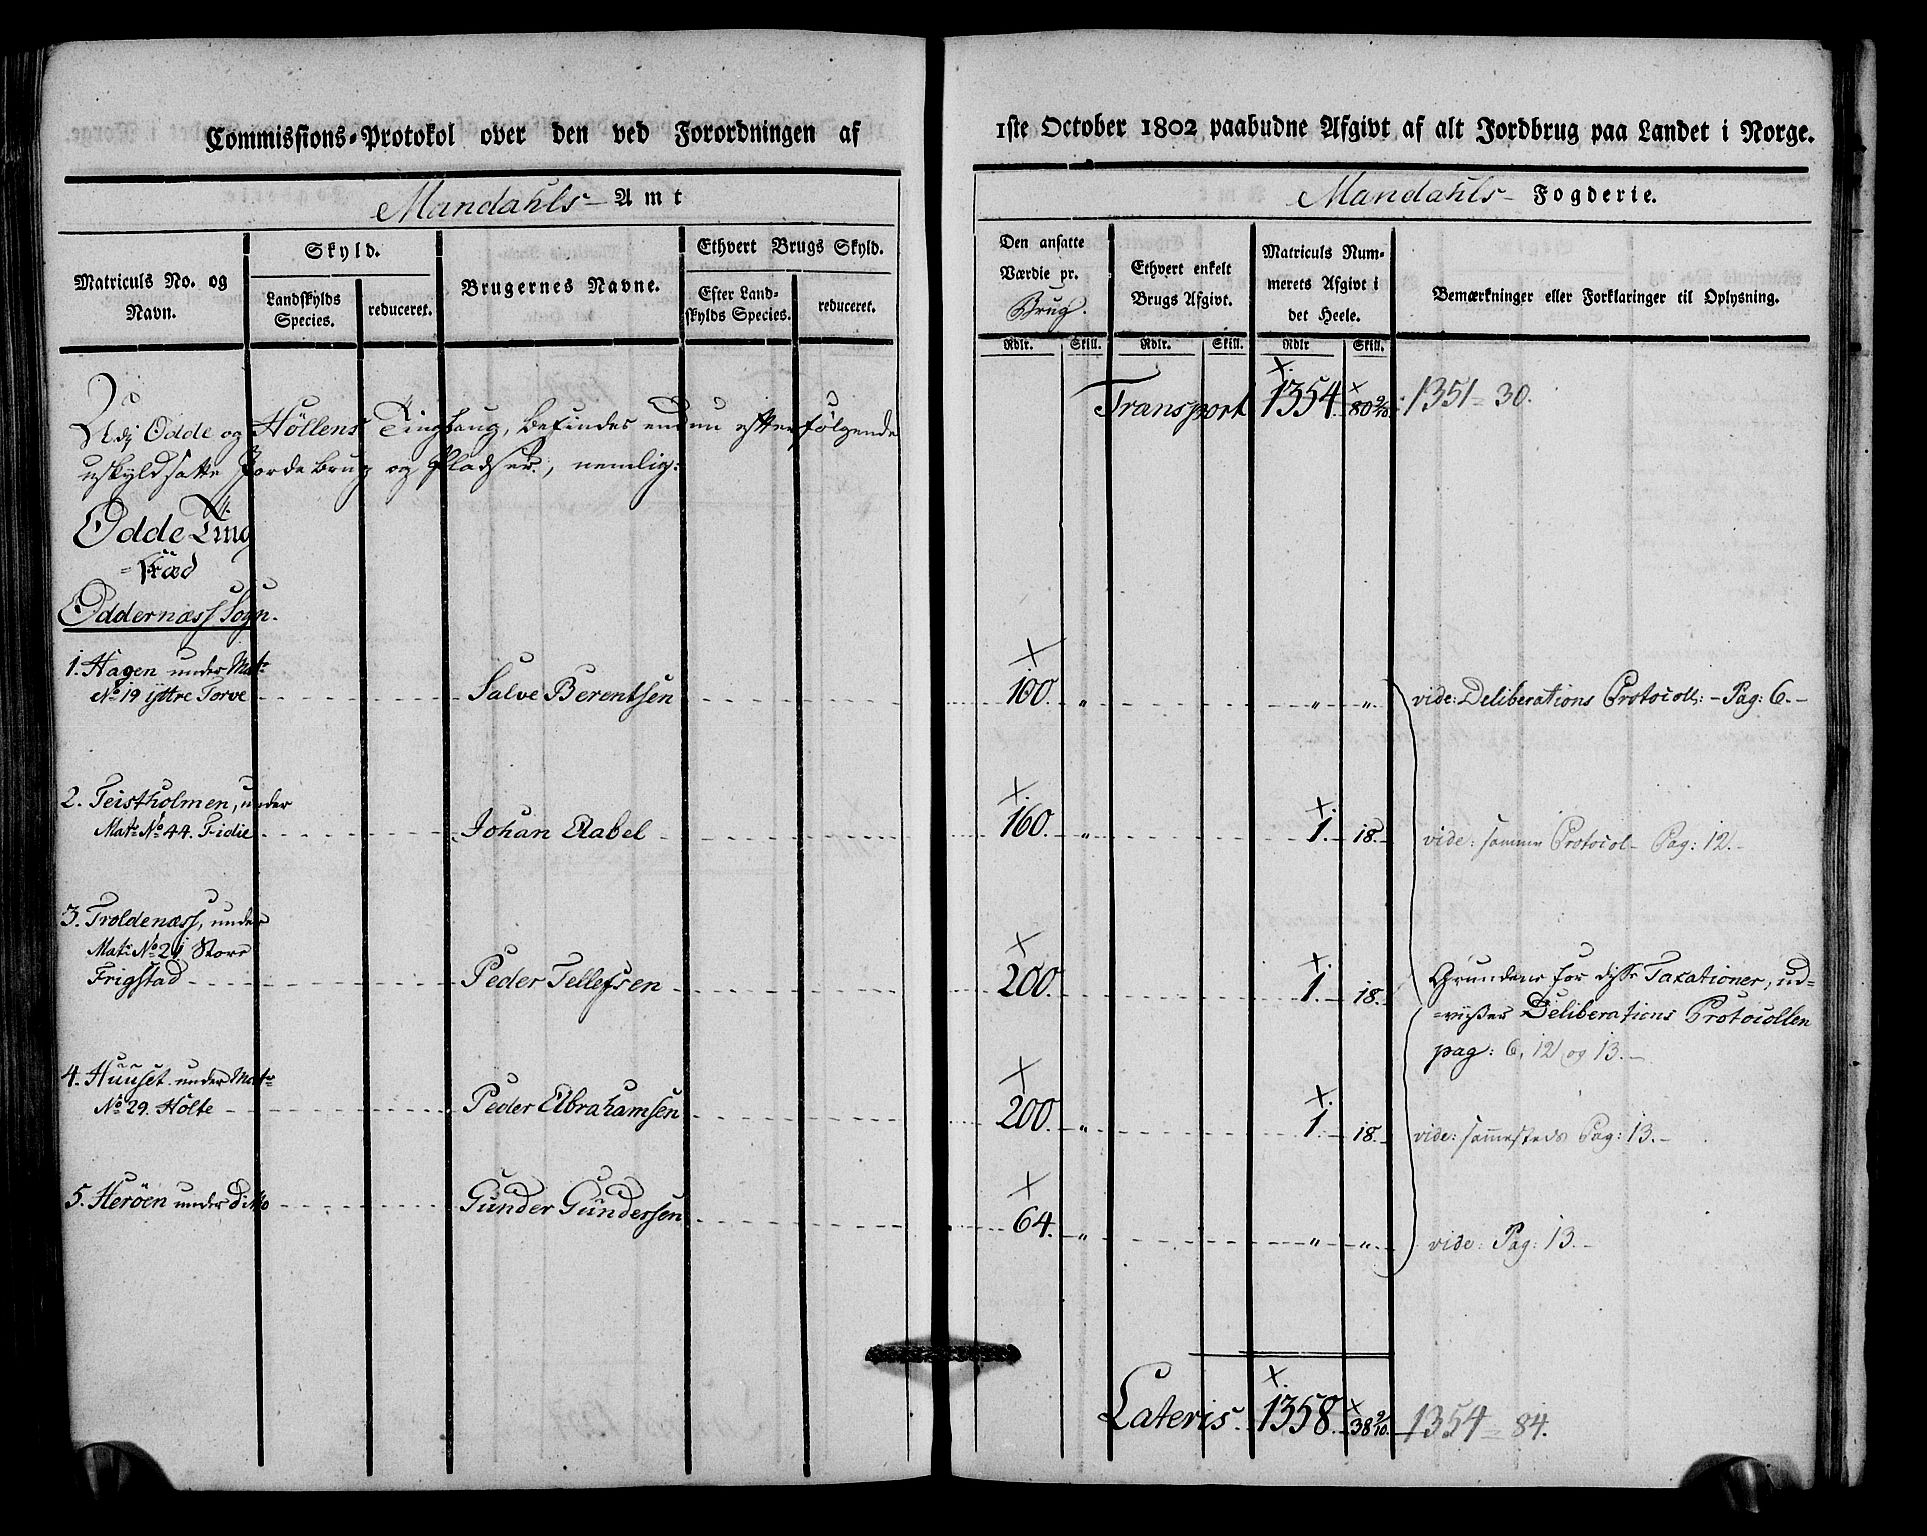 Commissions-Protokol over den ved Forordningen af
Mandahls Amt
Matriculs No. og Navn.
Skyld.
Landskylds Species.
reduceret.
Brugernes Navne.
Ethvert Brugs Skyld.
Efter Landskylds Species.
reduceret.
Udj Odde og Höllens Tinglaug, befindes endnu efterfölgende
uskyldsatte Jordebrug og Pladser, nemlig:
Odde Ting
=stæd
Oddernæss Sogn.
1. Hagen under Mat:
No 19 ÿttre Torve
Salve Berentsen
2. Teistholmen, under
Mat: No 44. Fidie
Johan Aabel
3. Troldenæss, under
Mat: No 21 Store
Frigstad
Peder Tellefsen
4. Huuset under Mat:
No 29. Holte
Peder Abrahamsen
5. Heröen under Ditto
Gunder Gundersen
1ste October 1802 paabudne Afgivt af alt Jordbrug paa Landet i Norge.
Mandahls Fogderie.
Den ansatte Værdie pr. Brug.
Ethvert enkelt Brugs Afgivt.
Matriculs Nummerets Afgivt i det Heele.
Bemærkninger eller Forklaringer til Oplysning.
Rdlr. Skill. Rdlr. Skill. Rdlr Skill.
Transport 1354. 80 9/10. 1351 = 30.
100. „ „ „ vide: Deliberations Protocoll: - Pag: 6.-
160. „ 1. 18. vide: samme Protocol - Pag: 12.-
200. 1. 18. Grundene for disse Taxationer, ud=
=viser Deliberations Protocollen
pag: 6, 12 og 13.-
200. „ 1. 18. vide: sammesteds Pag: 13.-
64. „ „ „ vide: Pag: 13.-
Lateris. 1358. 38 9/10. 1354 = 84.